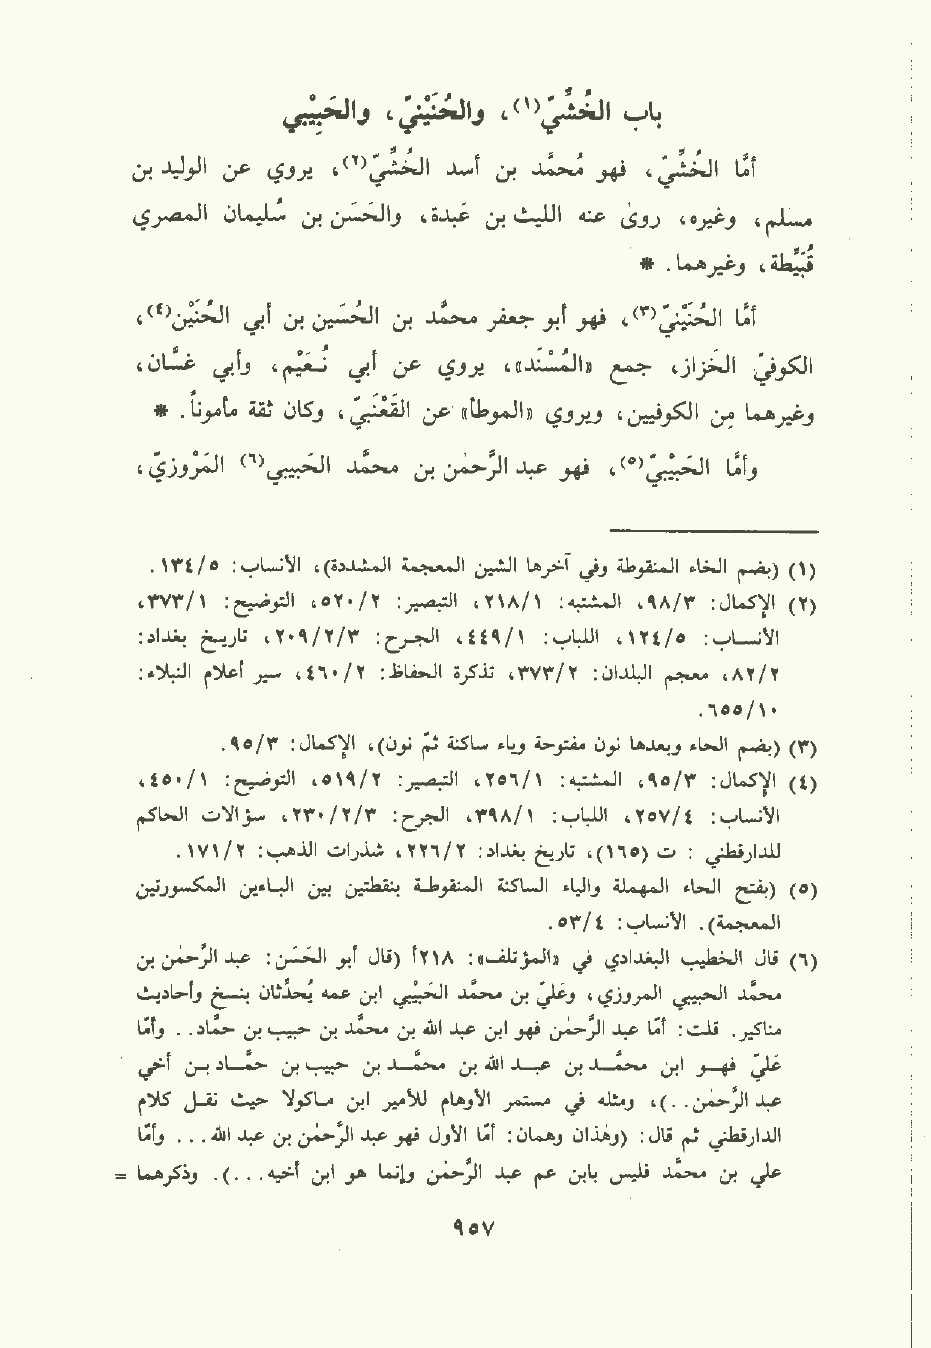 باب الخُشِّيّ(١)، والحُنَيْنيّ، والحَبِيْبي
أمَّا الخُشِّيّ، فهو مُحمَّد بن أسد الخُشِّيّ(٢)، يروي عن الوليد بن
مسلم، وغيره، روى عنه الليث بن عَبدة، والحَسَن بن سُليمان المصري
قُبَّيْطة، وغيرهما. *
أمَّا الحُنَيْنيّ(٣)، فهو أبو جعفر محمَّد بن الحُسَين بن أبي الحُنَيْن(٤)،
الكوفيّ الخزاز، جمع «المُسْنَد»، يروي عن أبي نُعَيْم، وأبي غسَّان،
وغيرهما مِن الكوفيين، ويروي «الموطأ» عن القَعْنَبيّ، وكان ثقة مأموناً. *
وأمَّا الحَبِيْبيّ(٥)، فهو عبد الرَّحمٰن بن محمَّد الحَبيبي(٦) المَرْوزيّ،
(١) (بضم الخاء المنقوطة وفي آخرها الشين المعجمة المشددة)، الأنساب: ١٣٤/٥.
(٢) الإكمال: ٩٨/٣، المشتبه: ٢١٨/١، التبصير: ٥٢٠/٢، التوضيح: ٣٧٣/١،
الأنساب: ١٢٤/٥، اللباب: ٤٤٩/١، الجرح: ٢٠٩/٢/٣، تاريخ بغداد:
٨٢/٢، معجم البلدان: ٣٧٣/٢، تذكرة الحفاظ: ٤٦٠/٢، سير أعلام النبلاء:
٦٥٥/١٠.
(٣) (بضم الحاء وبعدها نون مفتوحة وياء ساكنة ثمّ نون)، الإكمال: ٩٥/٣.
(٤) الإكمال: ٩٥/٣، المشتبه: ٢٥٦/١، التبصير: ٥١٩/٢، التوضيح: ٤٥٠/١،
الأنساب: ٢٥٧/٤، اللباب: ٣٩٨/١، الجرح: ٢٣٠/٢/٣، سؤالات الحاكم
للدارقطني : ت (١٦٥)، تاريخ بغداد: ٢٢٦/٢، شذرات الذهب: ١٧١/٢.
(٥) (بفتح الحاء المهملة والياء الساكنة المنقوطة بنقطتين بين الباءين المكسورتين
المعجمة). الأنساب: ٥٣/٤.
(٦) قال الخطيب البغدادي في «المؤتلف»: ٢١٨أ (قال أبو الحَسَن: عبد الرَّحمٰن بن
محمَّد الحبيبي المروزي، وعَليّ بن محمَّد الحَبِيْبي ابن عمه يُحدِّثان بنسخ وأحاديث
مناكير. قلت: أمَّا عبد الرَّحمٰن فهو ابن عبد الله بن محمَّد بن حبيب بن حمَّاد. . وأمَّا
عَليّ فهو ابن محمَّد بن عبد الله بن محمَّد بن حبيب بن حمَّاد بن أخي
عبد الرَّحمٰن. .)، ومثله في مستمر الأوهام للأمير ابن ماكولا حيث نقل كلام
الدارقطني ثم قال: (وهٰذان وهمان: أمَّا الأول فهو عبد الرَّحمٰن بن عبد الله. . . وأمَّا
علي بن محمَّد فليس بابن عم عبد الرَّحمٰن وإنما هو ابن أخيه. . .). وذكرهما =
٩٥٧